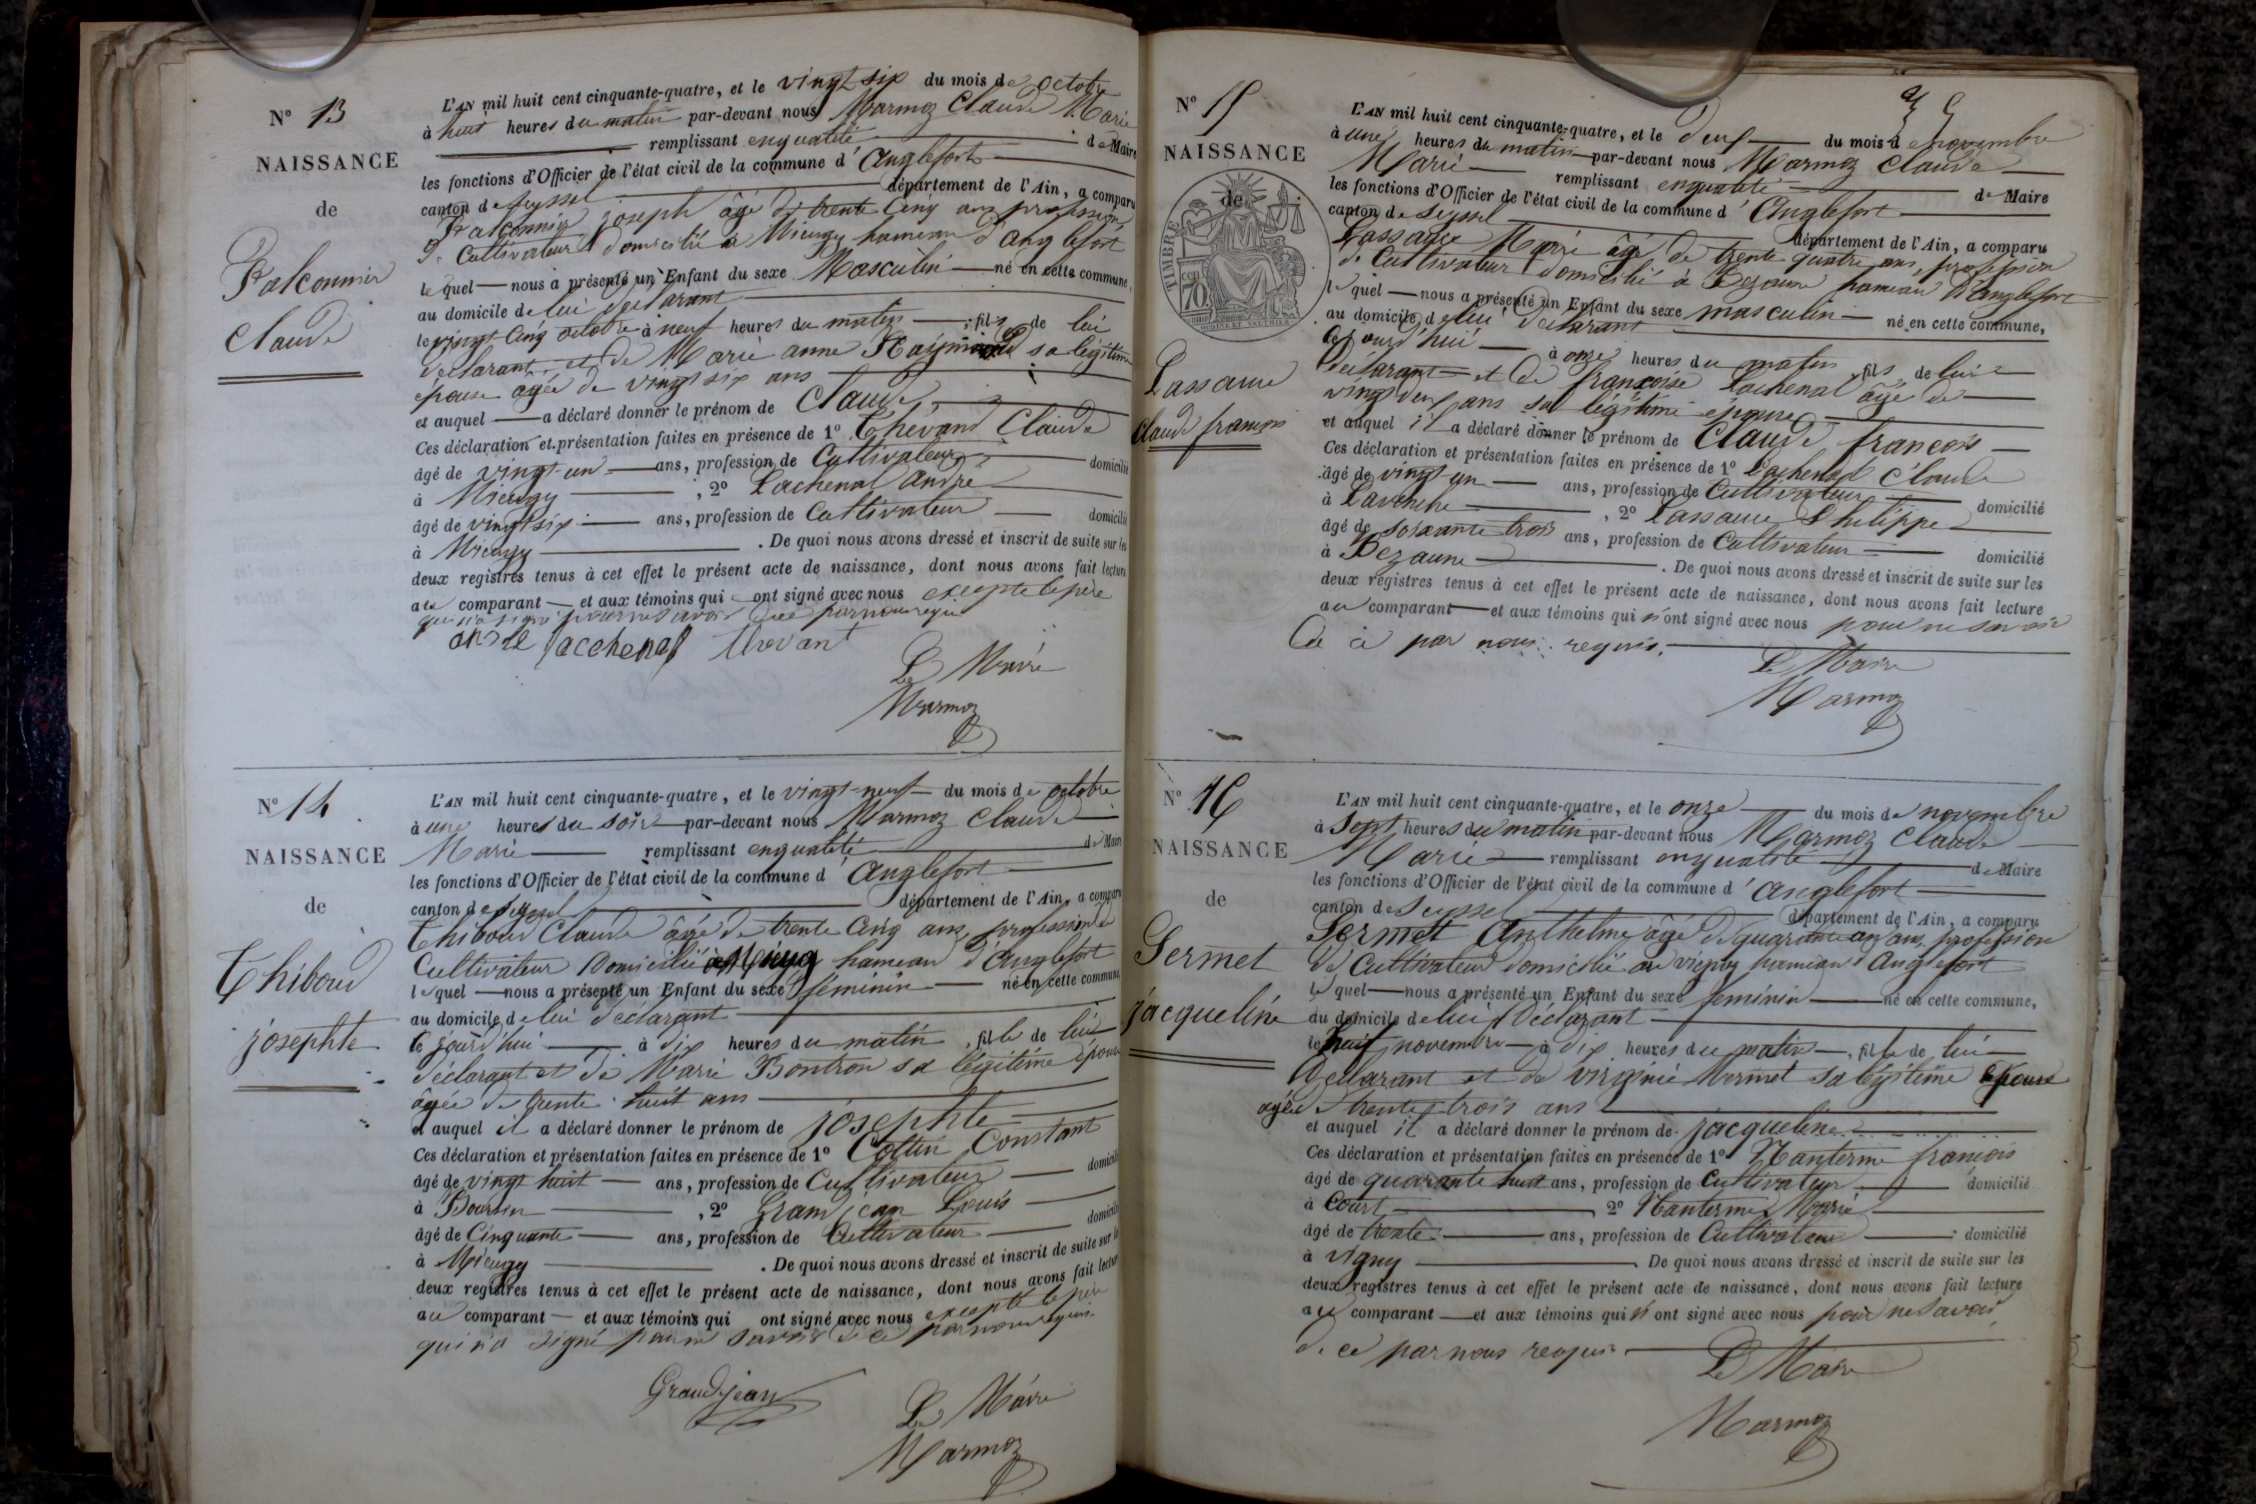 N° 13
NAISSANCE
de
Falconnier
Claude
L'AN mil huit cent cinquante-quatre, et le vingt six du mois de octobre
à huit heures du matin par-devant nous Marmoz Claude Marie
remplissant en qualité de Maire
les fonctions d'Officier de l'état civil de la commune d'Anglefort
canton de Seyssel département de l'Ain, a comparu
Falconnier joseph âgé de trente cinq ans profession
de Cultivateur domicilié à Mieugy hameau d'anglefort
lequel nous a présenté un Enfant du sexe Masculin né en cette commune,
au domicile de lui déclarant
le vingt cinq octobre à neuf heures du matin, fils de lui
déclarant et de Marie anne sa légitime
épouse agée de vingt six ans
et auquel a déclaré donner le prénom de Claude
Ces déclaration et présentation faites en présence de 1° Thévand Claude
âgé de vingt un ans, profession de Cultivateur domicilié
à Mieugy, 2° Lachenal André
âgé de vingt six ans, profession de Cultivateur domicilié
à Mieugy. De quoi nous avons dressé et inscrit de suite sur les
deux registres tenus à cet effet le présent acte de naissance, dont nous avons fait lecture
au comparant et aux témoins qui ont signé avec nous excepté le père
qui n'a signé pour ne savoir de ce par nous requis
andre lacchenal thevant
Le Maire
Marmoz
N° 14
NAISSANCE
de
Thiboud
josephte
L'AN mil huit cent cinquante-quatre, et le vingt-neuf du mois de octobre
à une heures du soir par-devant nous Marmoz Claude
Marie remplissant en qualité de Maire
les fonctions d'Officier de l'état civil de la commune d'Anglefort
canton de Seyssel département de l'Ain, a comparu
Thiboud Claude âgé de trente cinq ans, profession de
Cultivateur Domicilié à hameau d'Anglefort
lequel nous a présenté un Enfant du sexe féminin né en cette commune,
au domicile de lui déclarant
ce jourd'hui à dix heures du matin, fille de lui
déclarant et de Marie Bontron sa légitime épouse
agée de trente huit ans
et auquel il a déclaré donner le prénom de josephte
Ces déclaration et présentation faites en présence de 1° Cottin Constant
âgé de vingt huit ans, profession de Cultivateur domicilié
à, 2° Grandjean Louis
âgé de Cinquante ans, profession de Cultivateur domicilié
à Mieugy. De quoi nous avons dressé et inscrit de suite sur les
deux registres tenus à cet effet le présent acte de naissance, dont nous avons fait lecture
au comparant et aux témoins qui ont signé avec nous excepté le père
qui n'a signé pour ne savoir de ce par nous requis.
Grandjean
Le Maire
Marmoz
N° 15
NAISSANCE
de
TIMBRE
70
Lassaue
Claude françois
L'AN mil huit cent cinquante-quatre, et le deux du mois de novembre
à une heures du matin par-devant nous Marmoz Claude
Marie remplissant en qualité de Maire
les fonctions d'Officier de l'état civil de la commune d'Anglefort
canton de Seyssel département de l'Ain, a comparu
Lassaue Marie âgé de trente quatre ans, profession
de Cultivateur domicilié à Bezaune hameau d'anglefort
lequel nous a présenté un Enfant du sexe masculin né en cette commune,
au domicile de lui déclarant
ce jourd'hui à onze heures du matin, fils de lui
déclarant et de françoise Lachenal âgé de
vingt deux ans sa légitime épouse
et auquel il a déclaré donner le prénom de Claude françois
Ces déclaration et présentation faites en présence de 1° Lachenal Claude
âgé de vingt un ans, profession de Cultivateur domicilié
à Lavenche, 2° Lassaue Philippe
âgé de soixante trois ans, profession de Cultivateur domicilié
à Bezaune. De quoi nous avons dressé et inscrit de suite sur les
deux registres tenus à cet effet le présent acte de naissance, dont nous avons fait lecture
au comparant et aux témoins qui n'ont signé avec nous pour ne savoir
de ce par nous requis.
Le Maire
Marmoz
N° 16
NAISSANCE
de
Sermet
jacqueline
L'AN mil huit cent cinquante-quatre, et le onze du mois de novembre
à sept heures du matin par-devant nous Marmoz Claude
Marie remplissant en qualité de Maire
les fonctions d'Officier de l'état civil de la commune d'Anglefort
canton de Seyssel département de l'Ain, a comparu
Sermet Anthelme âgé de quarante un ans, profession
de Cultivateur domicilié au vigny hameau d'Anglefort
lequel nous a présenté un Enfant du sexe feminin né en cette commune,
au domicile de lui Déclarant
le huit novembre à dix heures du matin, fille de lui
Déclarant et de virginie Mermet sa légitime épouse
agée de trente trois ans
et auquel il a déclaré donner le prénom de jacqueline
Ces déclaration et présentation faites en présence de 1° Nanterme francois
âgé de quarante huit ans, profession de Cultivateur domicilié
à Court, 2° Nanterme Marie
âgé de trente ans, profession de Cultivateur domicilié
à vigny. De quoi nous avons dressé et inscrit de suite sur les
deux registres tenus à cet effet le présent acte de naissance, dont nous avons fait lecture
au comparant et aux témoins qui n'ont signé avec nous pour ne savoir
de ce par nous requis
Le Maire
Marmoz